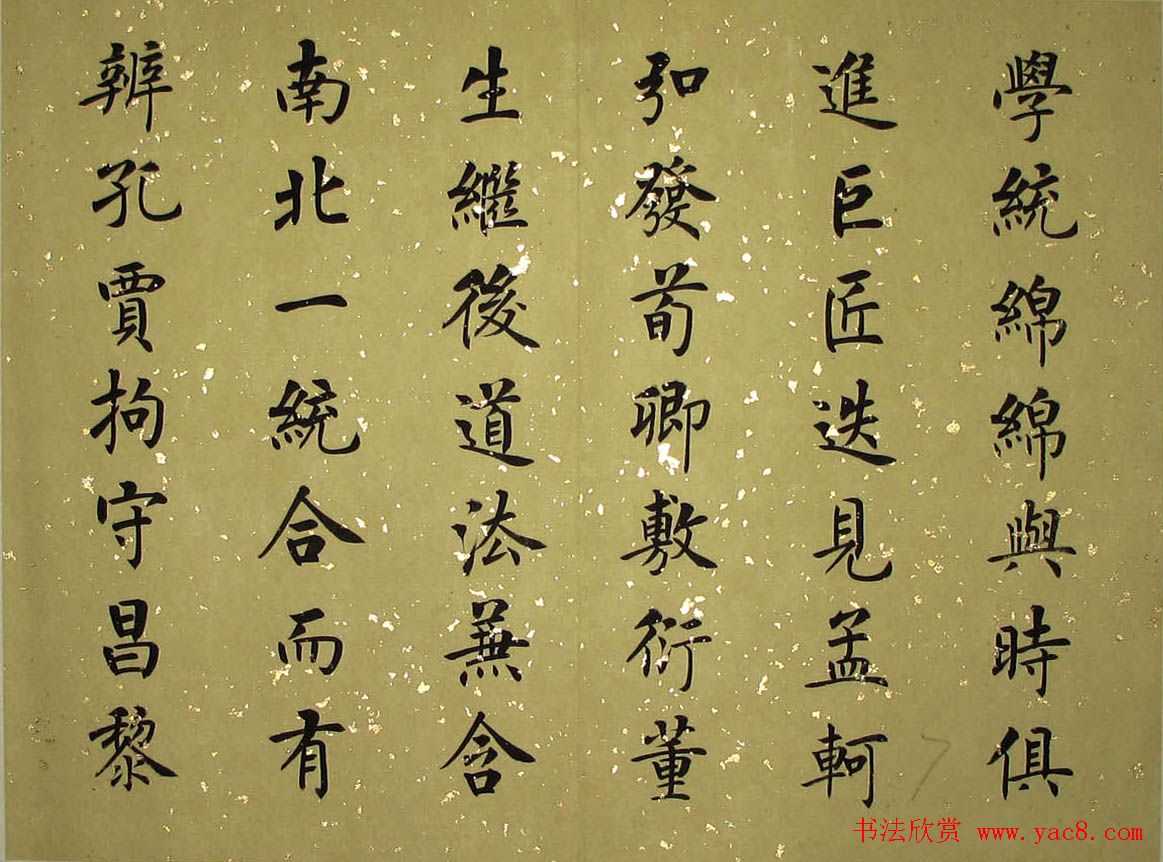 學統綿綿與時俱
進巨匠迭見孟軻
弘發荀卿敷衍董
生繼後道法兼含
南北一統合而有
辨孔賈拘守昌黎
书法欣赏 www.yac8.com